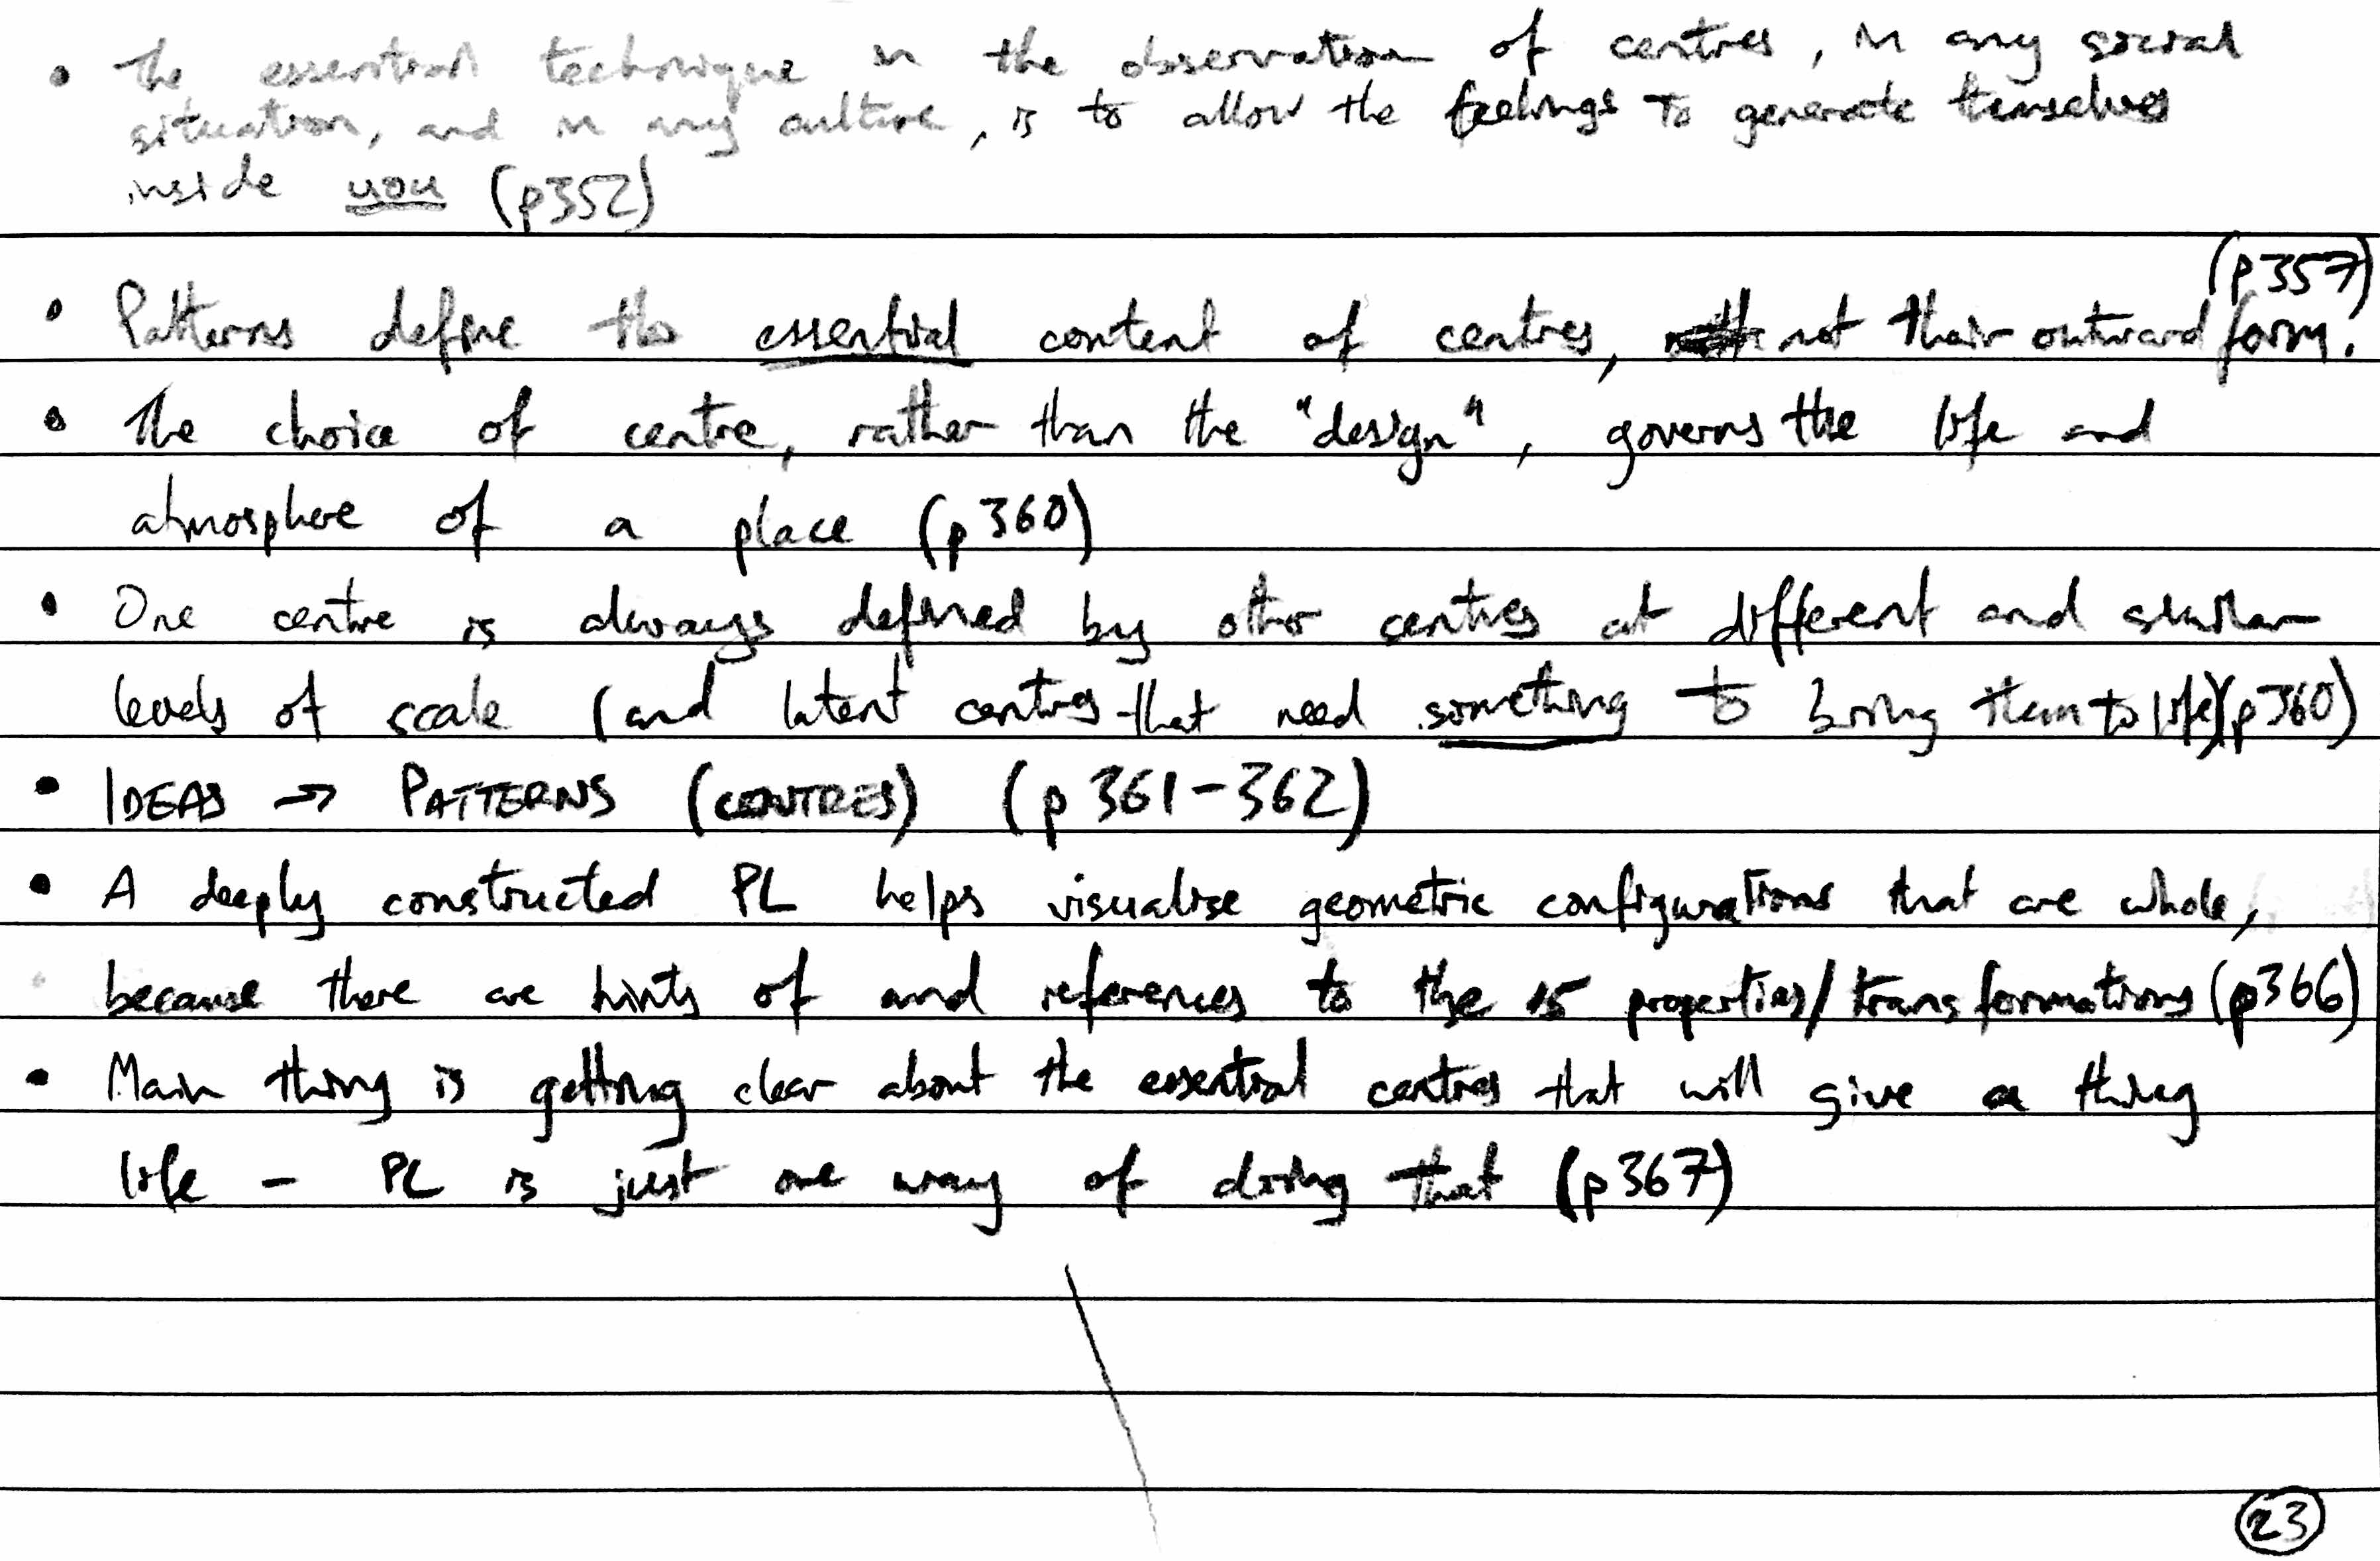 • The essential technique in the observation of centres, in any social
situation, and in any culture, is to allow the feelings to generate themselves
inside you (p352)
(p357)
• Patterns define the essential content of centres, not their outward form.
• The choice of centre, rather than the "design", governs the life and
atmosphere of a place (p360)
• One centre is always defined by other centres at different and similar
levels of scale (and latent centres that need something to bring them to life)(p360)
• IDEAS → PATTERNS (CENTRES) (p 361-362)
• A deeply constructed PL helps visualise geometric configurations that are whole,
because there are hints of and references to the 15 properties/transformations (p366)
• Main thing is getting clear about the essential centres that will give a thing
life - PL is just one way of doing that (p367)
23